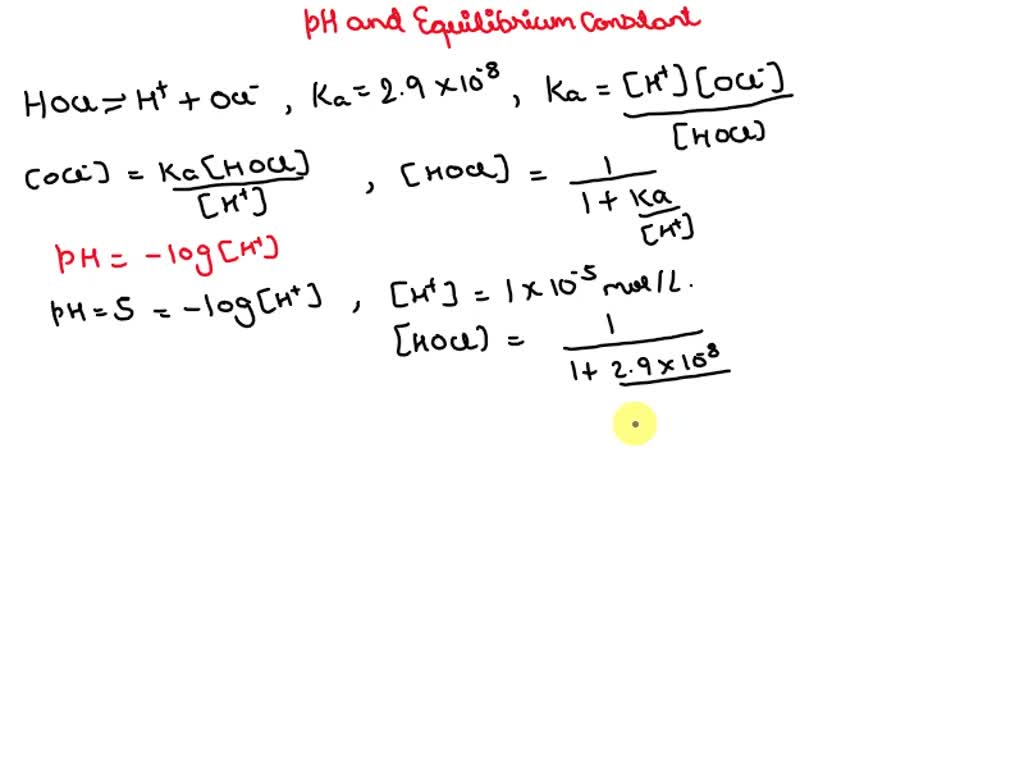 pH and Equilibrium Constant
HOCl ⇌ H⁺ + OCl⁻ , Ka = 2.9 × 10⁻⁸ , Ka = [H⁺][OCl⁻] / [HOCl]
[OCl⁻] = Ka[HOCl] / [H⁺] , [HOCl] = 1 / (1 + Ka / [H⁺])
pH = -log[H⁺]
pH = 5 = -log[H⁺] , [H⁺] = 1 × 10⁻⁵ mol/L.
[HOCl] = 1 / (1 + 2.9 × 10⁻⁸